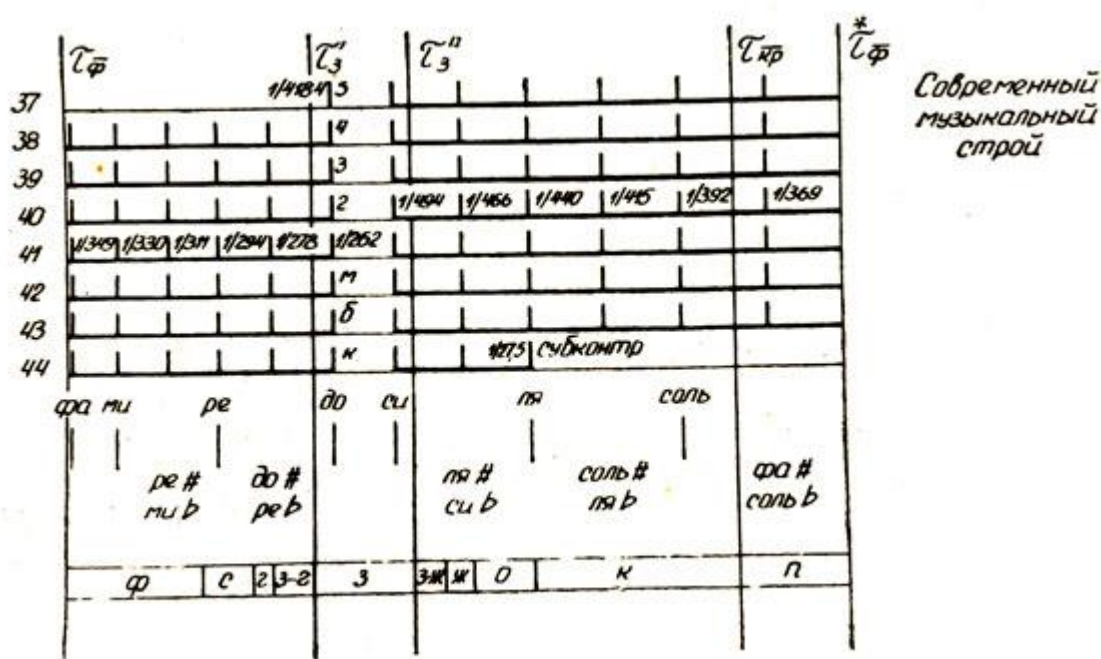 τф τ'з τ"з τкр *τф
Современный
музыкальный
строй
37 1/4184 5
38 4
39 3
40 2 1/494 1/466 1/440 1/415 1/392 1/369
41 1/349 1/330 1/311 1/294 1/278 1/262
42 м
43 б
44 к 1/27,5 субконтр
фа ми ре до си ля соль
ре # до # ля # соль # фа #
ми b ре b си b ля b соль b
ф с г з-г з з-ж ж о к п